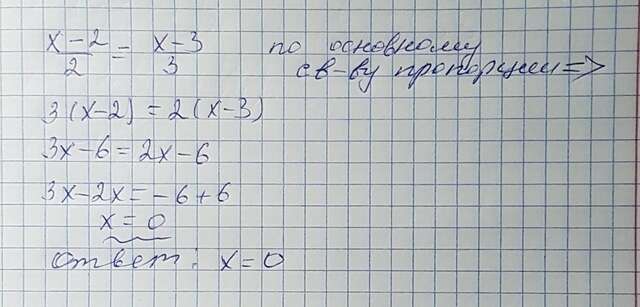 x-2/2 = x-3/3 по основному
св-ву пропорции =>
3(x-2) = 2(x-3)
3x-6 = 2x-6
3x-2x = -6+6
x = 0
Ответ: x = 0